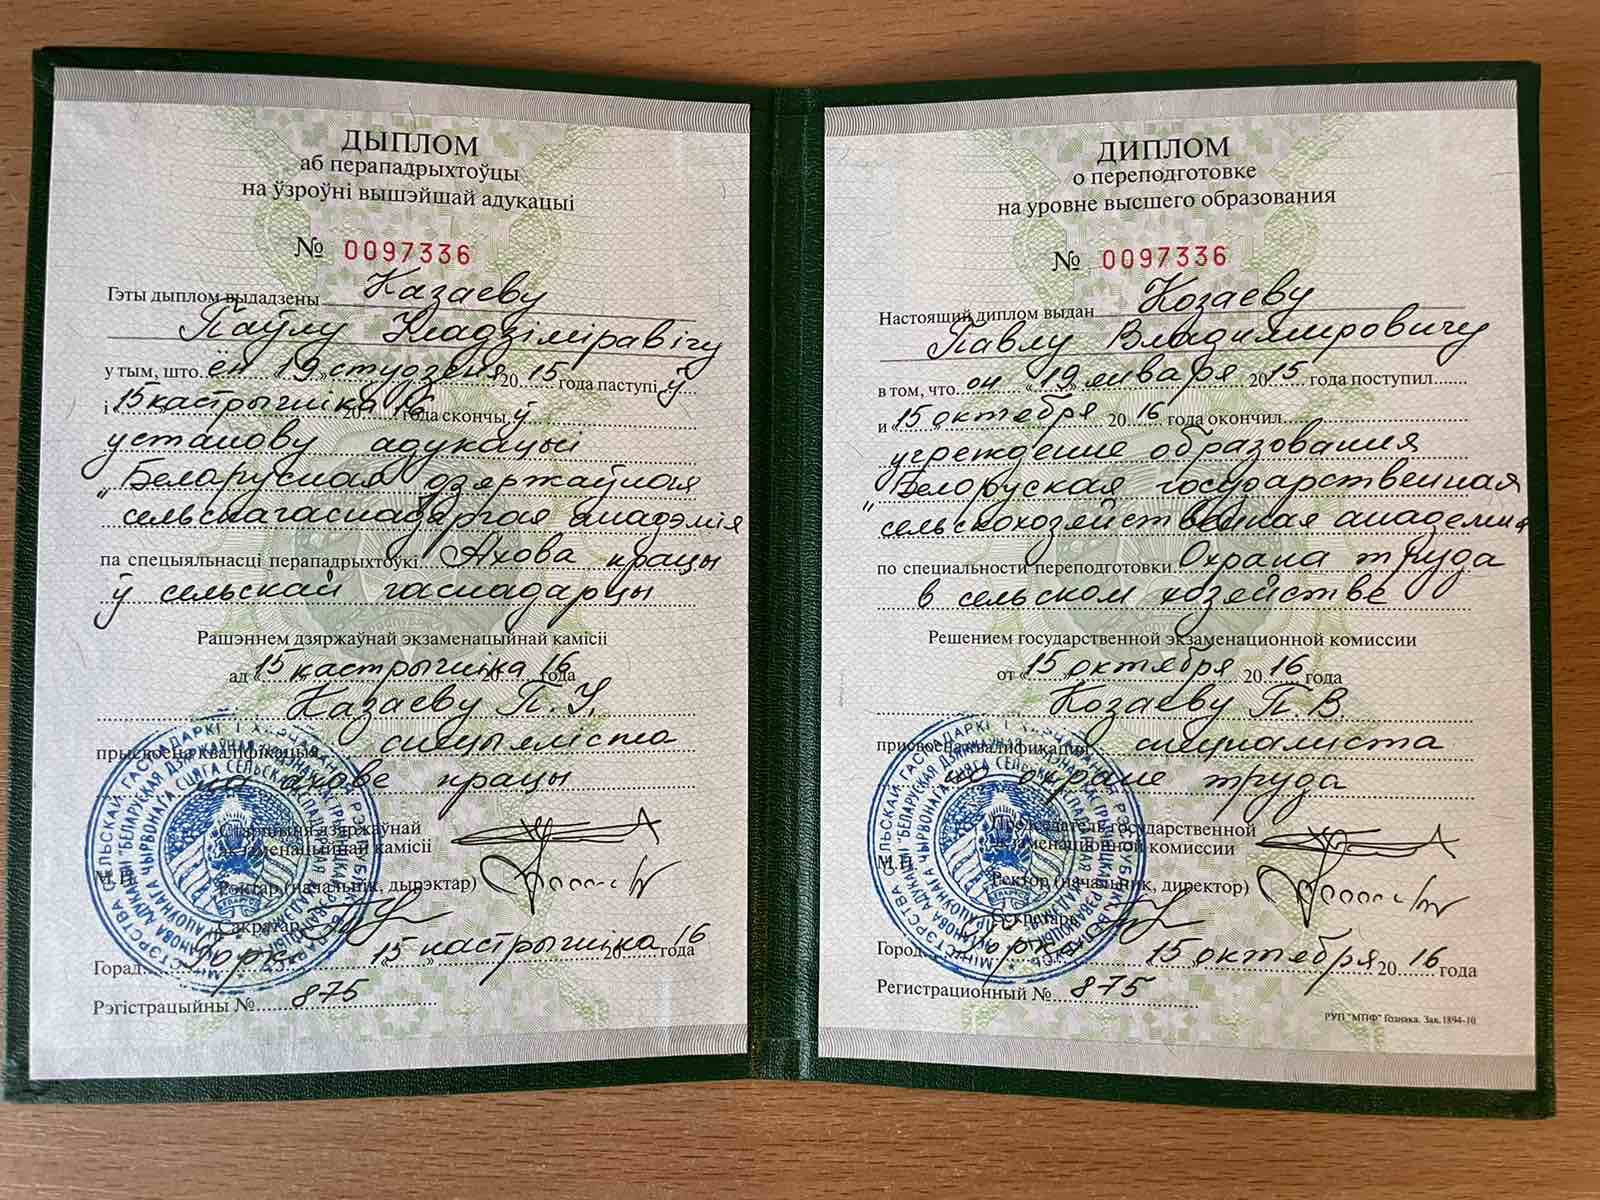 ДЫПЛОМ
аб перападрыхтоўцы
на ўзроўні вышэйшай адукацыі
№ 0097336
Гэты дыплом выдадзены Казаеву
Паўлу Уладзіміравічу
у тым, што ён "19" студзеня 2015 года паступіў
і "15" кастрычніка 2016 года скончыў
установу адукацыі
"Беларуская дзяржаўная
сельскагаспадарчая акадэмія"
па спецыяльнасці перападрыхтоўкі Ахова працы
ў сельскай гаспадарцы
Рашэннем дзяржаўнай экзаменацыйнай камісіі
ад "15" кастрычніка 2016 года
Казаеву П.У.
прысвоена кваліфікацыя спецыяліста
па ахове працы
Старшыня дзяржаўнай
экзаменацыйнай камісіі
М.П.
Рэктар (начальнік, дырэктар)
Сакратар
Горад Горкі "15" кастрычніка 2016 года
Рэгістрацыйны № 875
ДИПЛОМ
о переподготовке
на уровне высшего образования
№ 0097336
Настоящий диплом выдан Козаеву
Павлу Владимировичу
в том, что он "19" января 2015 года поступил
и "15" октября 2016 года окончил
учреждение образования
"Белоруская государственная
сельскохозяйственная академия"
по специальности переподготовки Охрана труда
в сельском хозяйстве
Решением государственной экзаменационной комиссии
от "15" октября 2016 года
Козаеву П.В.
присвоена квалификация специалиста
по охране труда
Председатель государственной
экзаменационной комиссии
М.П.
Ректор (начальник, директор)
Секретарь
Город Горки 15 октября 2016 года
Регистрационный № 875
РУП "МПФ" Гознака. Зак. 1894-10